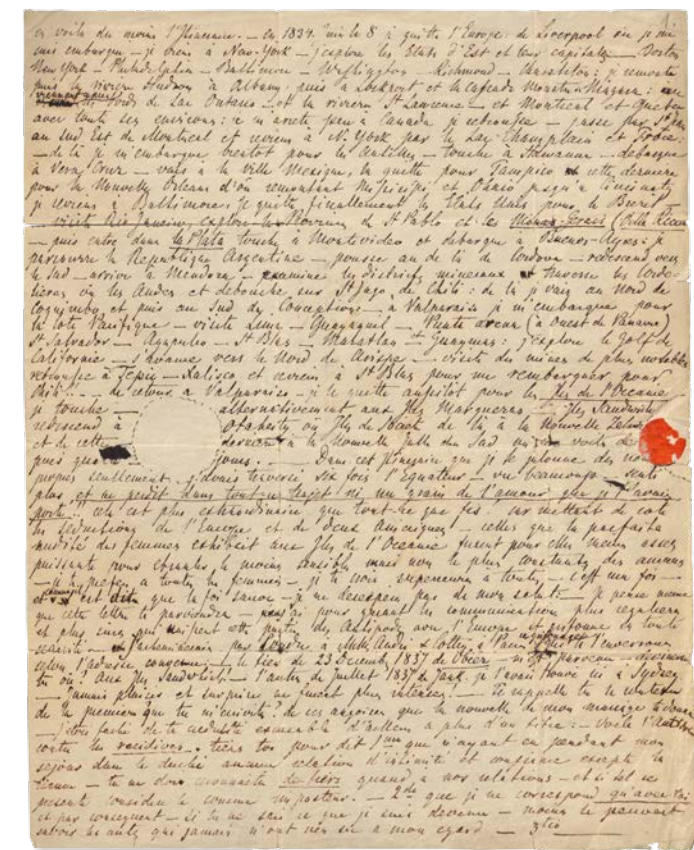 en voila du moins l'Itineraire. — en 1834. Juin le 8 je quitte l'Europe: de Liverpool où je
suis embarque — je viens à New-York — j'explore les Etats d'Est et leur capitales — Boston
New York — Philadelphia — Baltimore — Washington — Richmond — Charleston: je remonte
puis la riviere Hudson à Albany, puis à Lockport et la Cascade Niagara:
les bords de Lac Ontario — et la riviere St Laurence — et Montreal et Quebec
avec tout ses environs: ne m'arrete peu à Canada je rebrousse — passe par St
au Sud Est de Montreal et reviens à N. York par le Lac Champlain et
— de là je m'embarque bientot pour les Antilles — touche à Hawanna — debarque
à Vera Cruz — vais à la ville Mexique, la quitte pour Tampico et cette derniere
pour la Nouvelle Orleans d'où remontant Missisipi et Ohio jusqu'a Cincinati
je reviens à Baltimore: je quitte finallement les Etats Unis pour le Bresil —
visite Rio Janeiro, explore la Province de St Pablo et les Minas Geraes (Villa Ricca
— puis entre dans la Plata touche à Montevideo et debarque à Buenos-Ayres: je
parcours la Republique Argentine — pousse au de là de Cordova — redescend vers
le Sud — arrive à Mendoza — examine les districts mineraux et traverse les Cordi-
lieras ou les Andes et debouche sur St Jago de Chili: de là je vais au Nord de
Coquimbo et puis au Sud de Conception — à Valparaiso je m'embarque pour
la cote Pacifique — visite Lima — Guayaquil — Punta arena (à Ouest de Panama)
St Salvador — Acapulco — St Blas — Matatlan — Guaymas: j'explore le Golf de
Californie — s'avance vers le Nord de Arispe — visite des mines de plus notables
retourne à Tepic — Xalisco et reviens à St Blas pour me rembarquer pour
Chili — de retour à Valparaiso — je le quitte aussitôt pour les Iles de l'Oceanie
je touche — alternativement aux Iles Marquezas — Iles Sandwich
redescend à Otaheity ou Iles de Societé de là à la Nouvelle Zelande
et de cette derniere à la Nouvelle Galle du Sud où
puis que jours. — Dans cet Itineraire que je te donne des
propres seullement, j'avais traversé six fois l'Equateur — vu beaucoup — senti
plus, et ne perdit dans tout ce trajet ni un grain de l'amour que je t'avais
porté! cela est plus extraordinaire que tout ce que fis. car mettant de coté
les seductions de l'Europe et de deux Ameriques — celles que la parfaite
nudité des femmes exhibait aux Iles de l'Oceanie furent pour elles memes assez
puissante pour ebranler le moins sensible mais non le plus constante des amans
— je te prefere a toutes les femmes — je te vois superieure a toutes — c'est ma foi —
et c'est dite que la foi sauve — je ne desespere pas de mon salut — je pense meme
que cette lettre te parviendra — j'ai pour garant les communications plus regulieres
et plus sures qui unissent cette partie des Antipodes avec l'Europe et
l'acheminerai par Londre à à Paris
selon l'adresse convenue: — le tiers de 23 Decembre 1837 de m'est parvenu — devine
tu où? aux Iles Sandwich. — l'autre de Juillet 1837 de je l'avais trouvé ici a Sydney
— jamais plaisir et surprise ne furent plus intenses! — te rappelle tu le contenu
de la premiere que tu m'ecrivis? de ces angoisses que la nouvelle de mon mariage
— J'etois faché de ta credulité d'ailleurs a plus d'un titre: — voila l'antidote
contre les recidives. tiens toi pour dit 1mo que n'ayant eu pendant mon
sejour dans le duché aucune relation d'intimité et confiance excepté la
tienne — tu ne dois reconnaitre de tiers quand a nos relations — et si tel se
presente considere le comme imposteur. — 2do que je ne correspond qu'avec toi
et par consequent — si tu ne sais ce que je suis devenu — moins le peuvent
savoir les autres qui jamais n'ont rien su a mon egard — 3tio